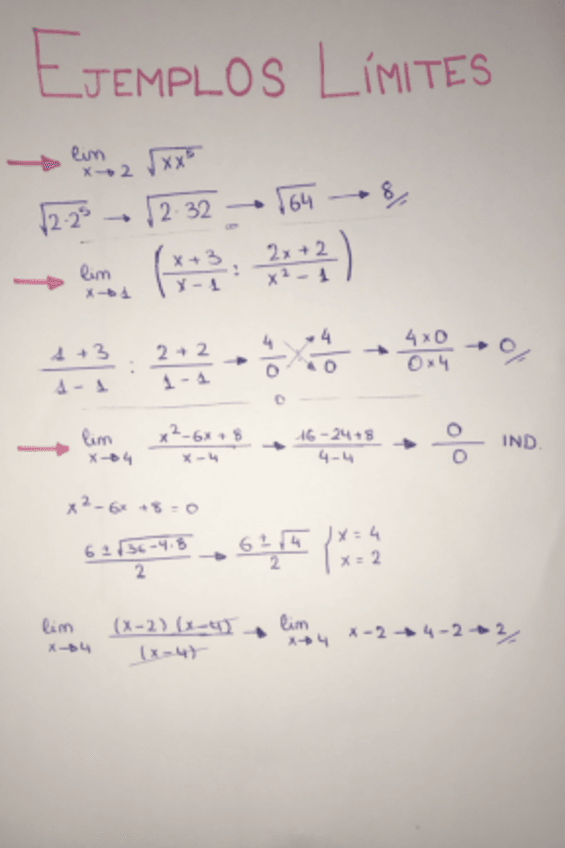 EJEMPLOS LÍMITES
→ lim x→2 √xx⁵
√2·2⁵ → √2·32 → √64 → 8//
→ lim x→1 (x+3/x-1 : 2x+2/x²-1)
1+3/1-1 : 2+2/1-1 → 4/0 4/0 → 4x0/0x4 → 0//
→ lim x→4 x²-6x+8/x-4 → 16-24+8/4-4 → 0/0 IND.
x²-6x+8=0
6±√36-4·8/2 → 6±√4/2 { x=4 x=2
lim x→4 (x-2)(x-4)/(x-4) → lim x→4 x-2→4-2→2//